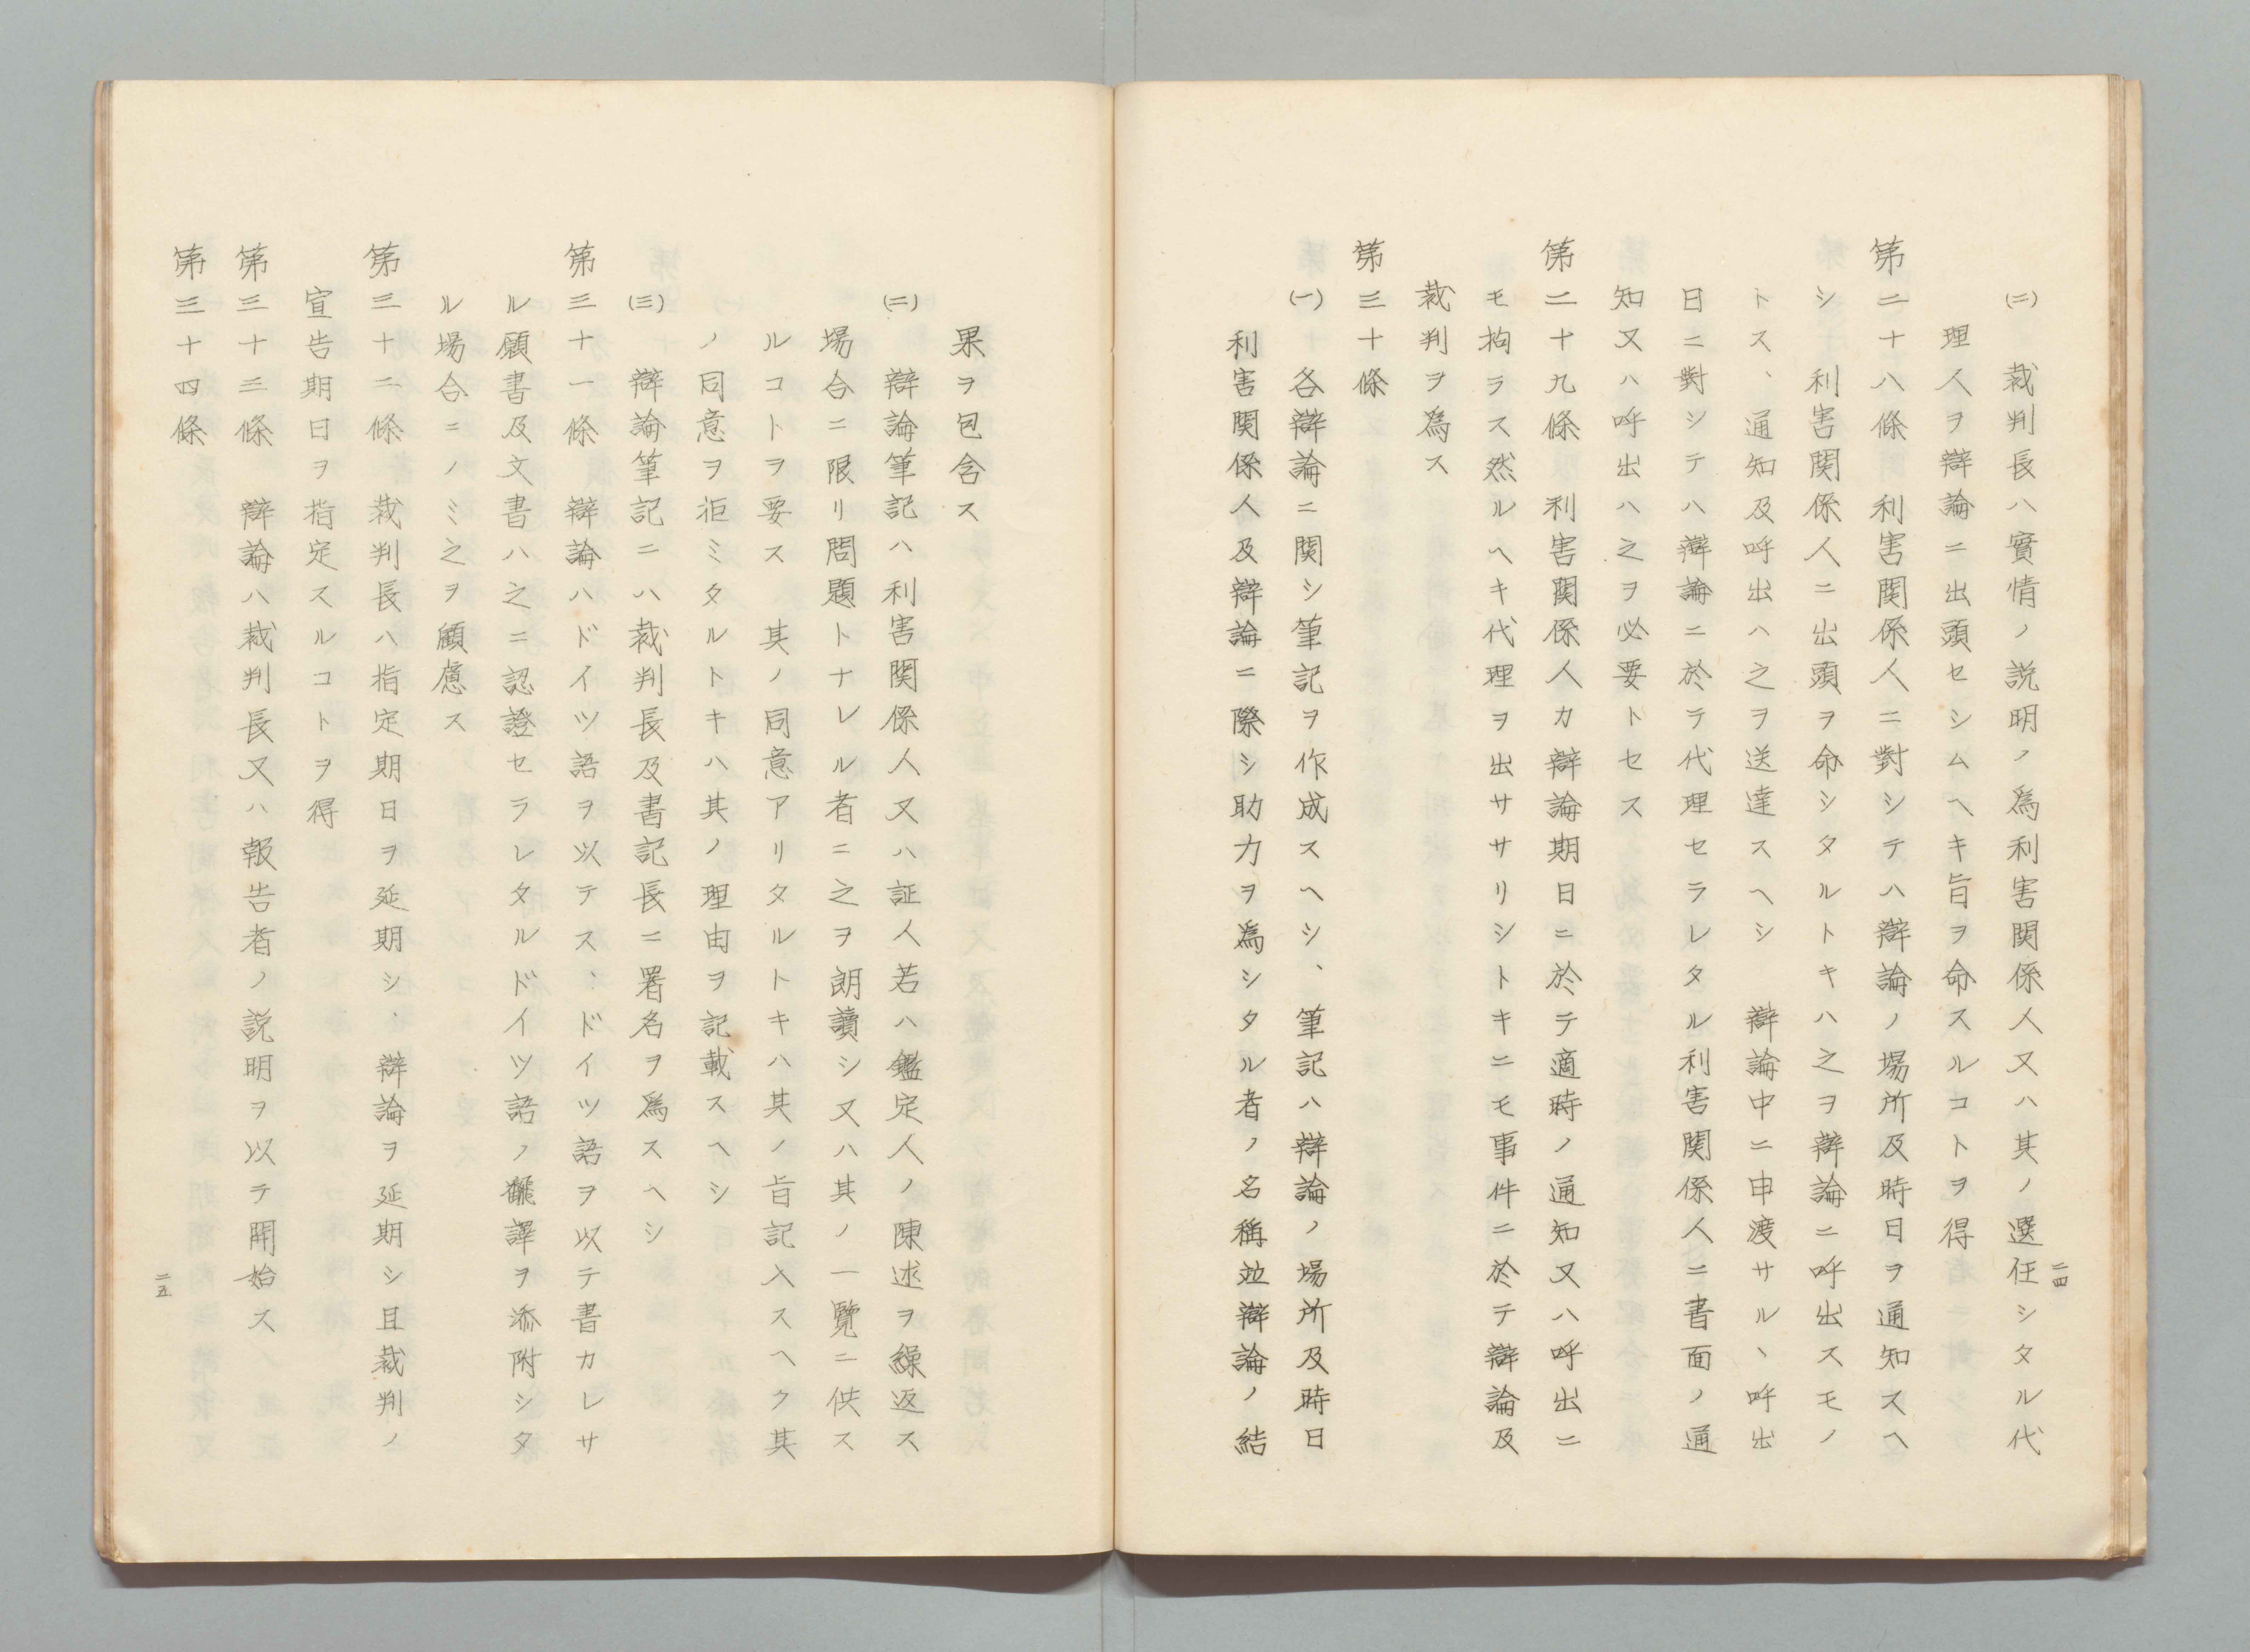 (二)　裁判長ハ實情ノ説明ノ爲利害関係人又ハ其ノ選任シタル代
理人ヲ辯論ニ出頭セシムヘキ旨ヲ命スルコトヲ得
第二十八條　利害関係人ニ對シテハ辯論ノ場所及時日ヲ通知スヘ
シ　利害関係人ニ出頭ヲ命シタルトキハ之ヲ辯論ニ呼出スモノ
トス、通知及呼出ハ之ヲ送達スヘシ　辯論中ニ申渡サル、呼出
日ニ對シテハ辯論ニ於テ代理セラレタル利害関係人ニ書面ノ通
知又ハ呼出ハ之ヲ必要トセス
第二十九條　利害関係人カ辯論期日ニ於テ適時ノ通知又ハ呼出ニ
モ拘ラス然ルヘキ代理ヲ出ササリシトキニモ事件ニ於テ辯論及
裁判ヲ爲ス
第三十條
(一)　各辯論ニ関シ筆記ヲ作成スヘシ、筆記ハ辯論ノ場所及時日
利害関係人及辯論ニ際シ助力ヲ爲シタル者ノ名稱竝辯論ノ結
二四
果ヲ包含ス
(二)　辯論筆記ハ利害関係人又ハ証人若ハ鑑定人ノ陳述ヲ繰返ス
場合ニ限リ問題トナレル者ニ之ヲ朗讀シ又ハ其ノ一覽ニ供ス
ルコトヲ要ス　其ノ同意アリタルトキハ其ノ旨記入スヘク其
ノ同意ヲ拒ミタルトキハ其ノ理由ヲ記載スヘシ
(三)　辯論筆記ニハ裁判長及書記長ニ署名ヲ爲スヘシ
第三十一條　辯論ハドイツ語ヲ以テス、ドイツ語ヲ以テ書カレサ
ル願書及文書ハ之ニ認證セラレタルドイツ語ノ飜譯ヲ添附シタ
ル場合ニノミ之ヲ顧慮ス
第三十二條　裁判長ハ指定期日ヲ延期シ、辯論ヲ延期シ且裁判ノ
宣告期日ヲ指定スルコトヲ得
第三十三條　辯論ハ裁判長又ハ報告者ノ説明ヲ以テ開始ス
第三十四條
二五